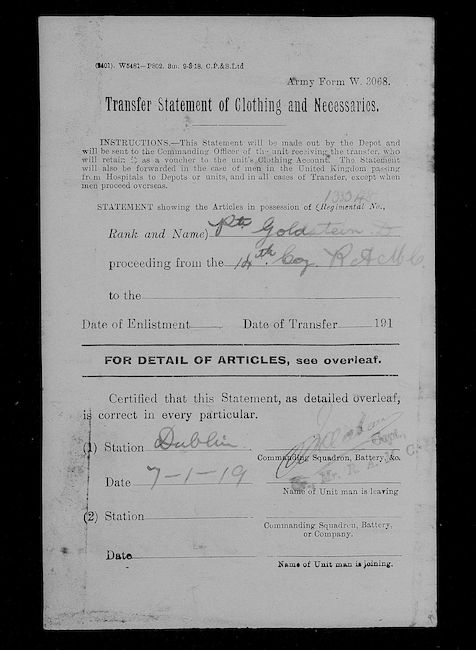 (2401). W5481—P802. 3m. 9-3-18. C.P.&S.Ltd
Army Form W. 3068.
Transfer Statement of Clothing and Necessaries.
INSTRUCTIONS.—This Statement will be made out by the Depot and
will be sent to the Commanding Officer of the unit receiving the transfer, who
will retain it as a voucher to the unit's Clothing Account. The Statement
will also be forwarded in the case of men in the United Kingdom passing
from Hospitals to Depots or units, and in all cases of Transfer, except when
men proceed overseas.
STATEMENT showing the Articles in possession of (Regimental No.,
Rank and Name) Pte Goldstein. D
proceeding from the 14th. Coy. R A M C
to the
Date of Enlistment Date of Transfer 191
FOR DETAIL OF ARTICLES, see overleaf.
Certified that this Statement, as detailed overleaf,
is correct in every particular.
(1) Station Dublin
Capt.
Commanding Squadron, Battery, &c.
Date 7-1-19
Name of Unit man is leaving
(2) Station
Commanding Squadron, Battery,
or Company.
Date
Name of Unit man is joining.